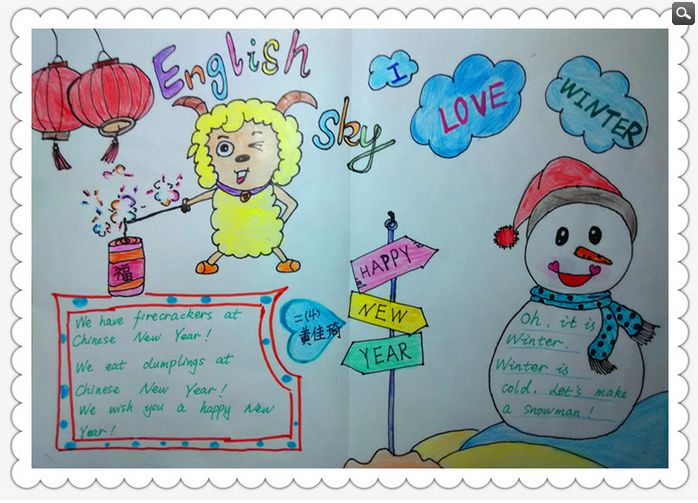 English
Sky
I
LOVE
WINTER
福
HAPPY
NEW
YEAR
We have firecrackers at
Chinese New Year!
We eat dumplings at
Chinese New Year!
We wish you a happy New
Year!
二(4)
黄佳琦
Oh, it is
Winter.
Winter is
cold. Let's make
a snowman!